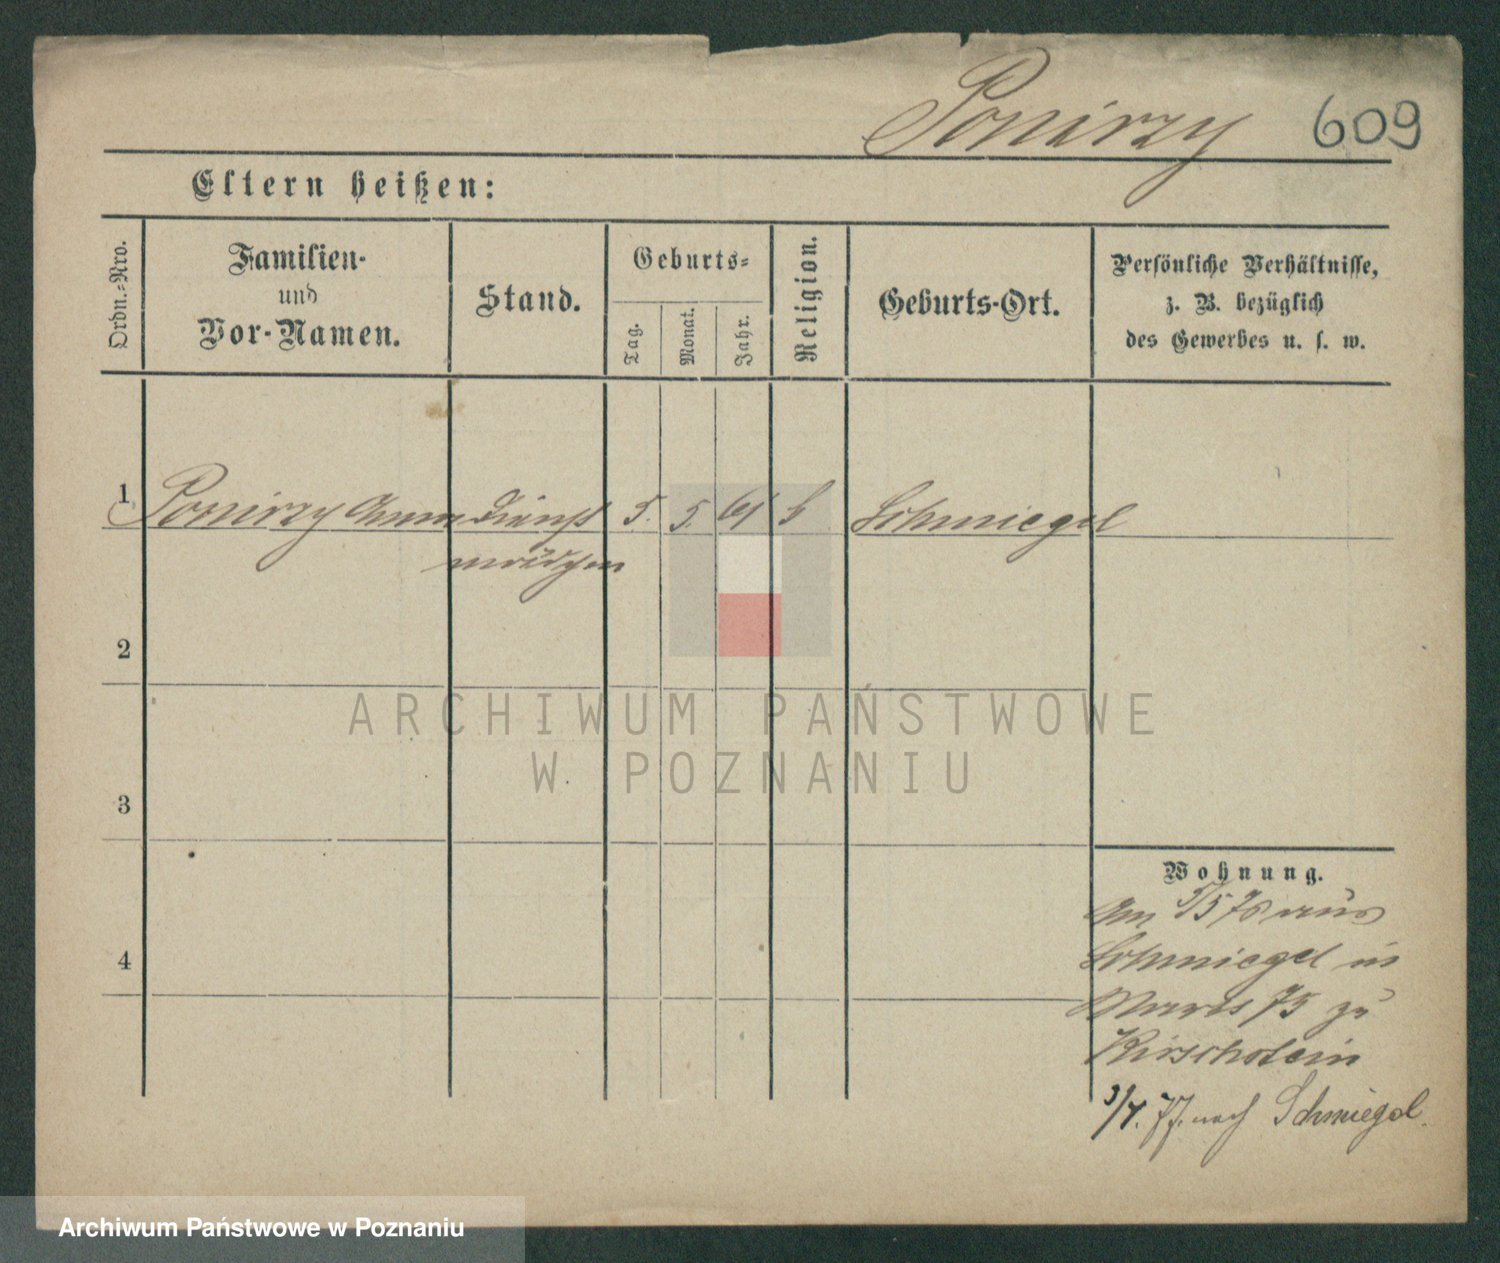 Ponirzy 609
Eltern heißen:
Ordn.-Nro.
Familien-
und
Vor-Namen.
Stand.
Geburts-
Tag.
Monat.
Jahr.
Religion.
Geburts-Ort.
Persönliche Verhältnisse,
z. B. bezüglich
des Gewerbes u. s. w.
1 Ponirzy Anna Dienst 5. 5. 61 k Schmiegel
mädchen
2
ARCHIWUM PAŃSTWOWE
W POZNANIU
3
4
Wohnung.
Am 5/5 76 aus
Schmiegel in
75 zu
Kirschstein
3/4. 77. nach Schmiegel.
Archiwum Państwowe w Poznaniu